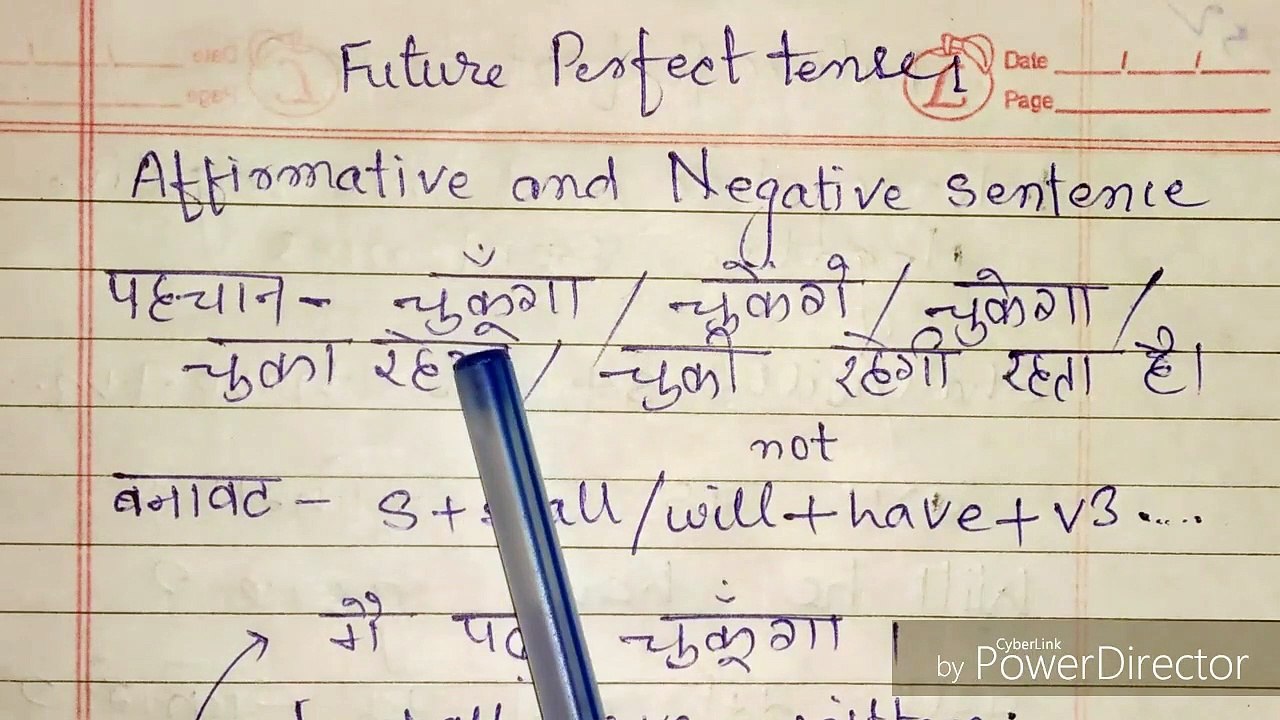 Future Perfect tense
Date
Page
Affirmative and Negative sentence
पहचान - चुकूँगा / चुकेंगे / चुकेगा /
चुका रहेगा / चुकी रहेगी रहता है।
not
बनावट - S + shall / will + have + v3 .....
मैं पढ़ चुकूँगा ।
CyberLink
by PowerDirector